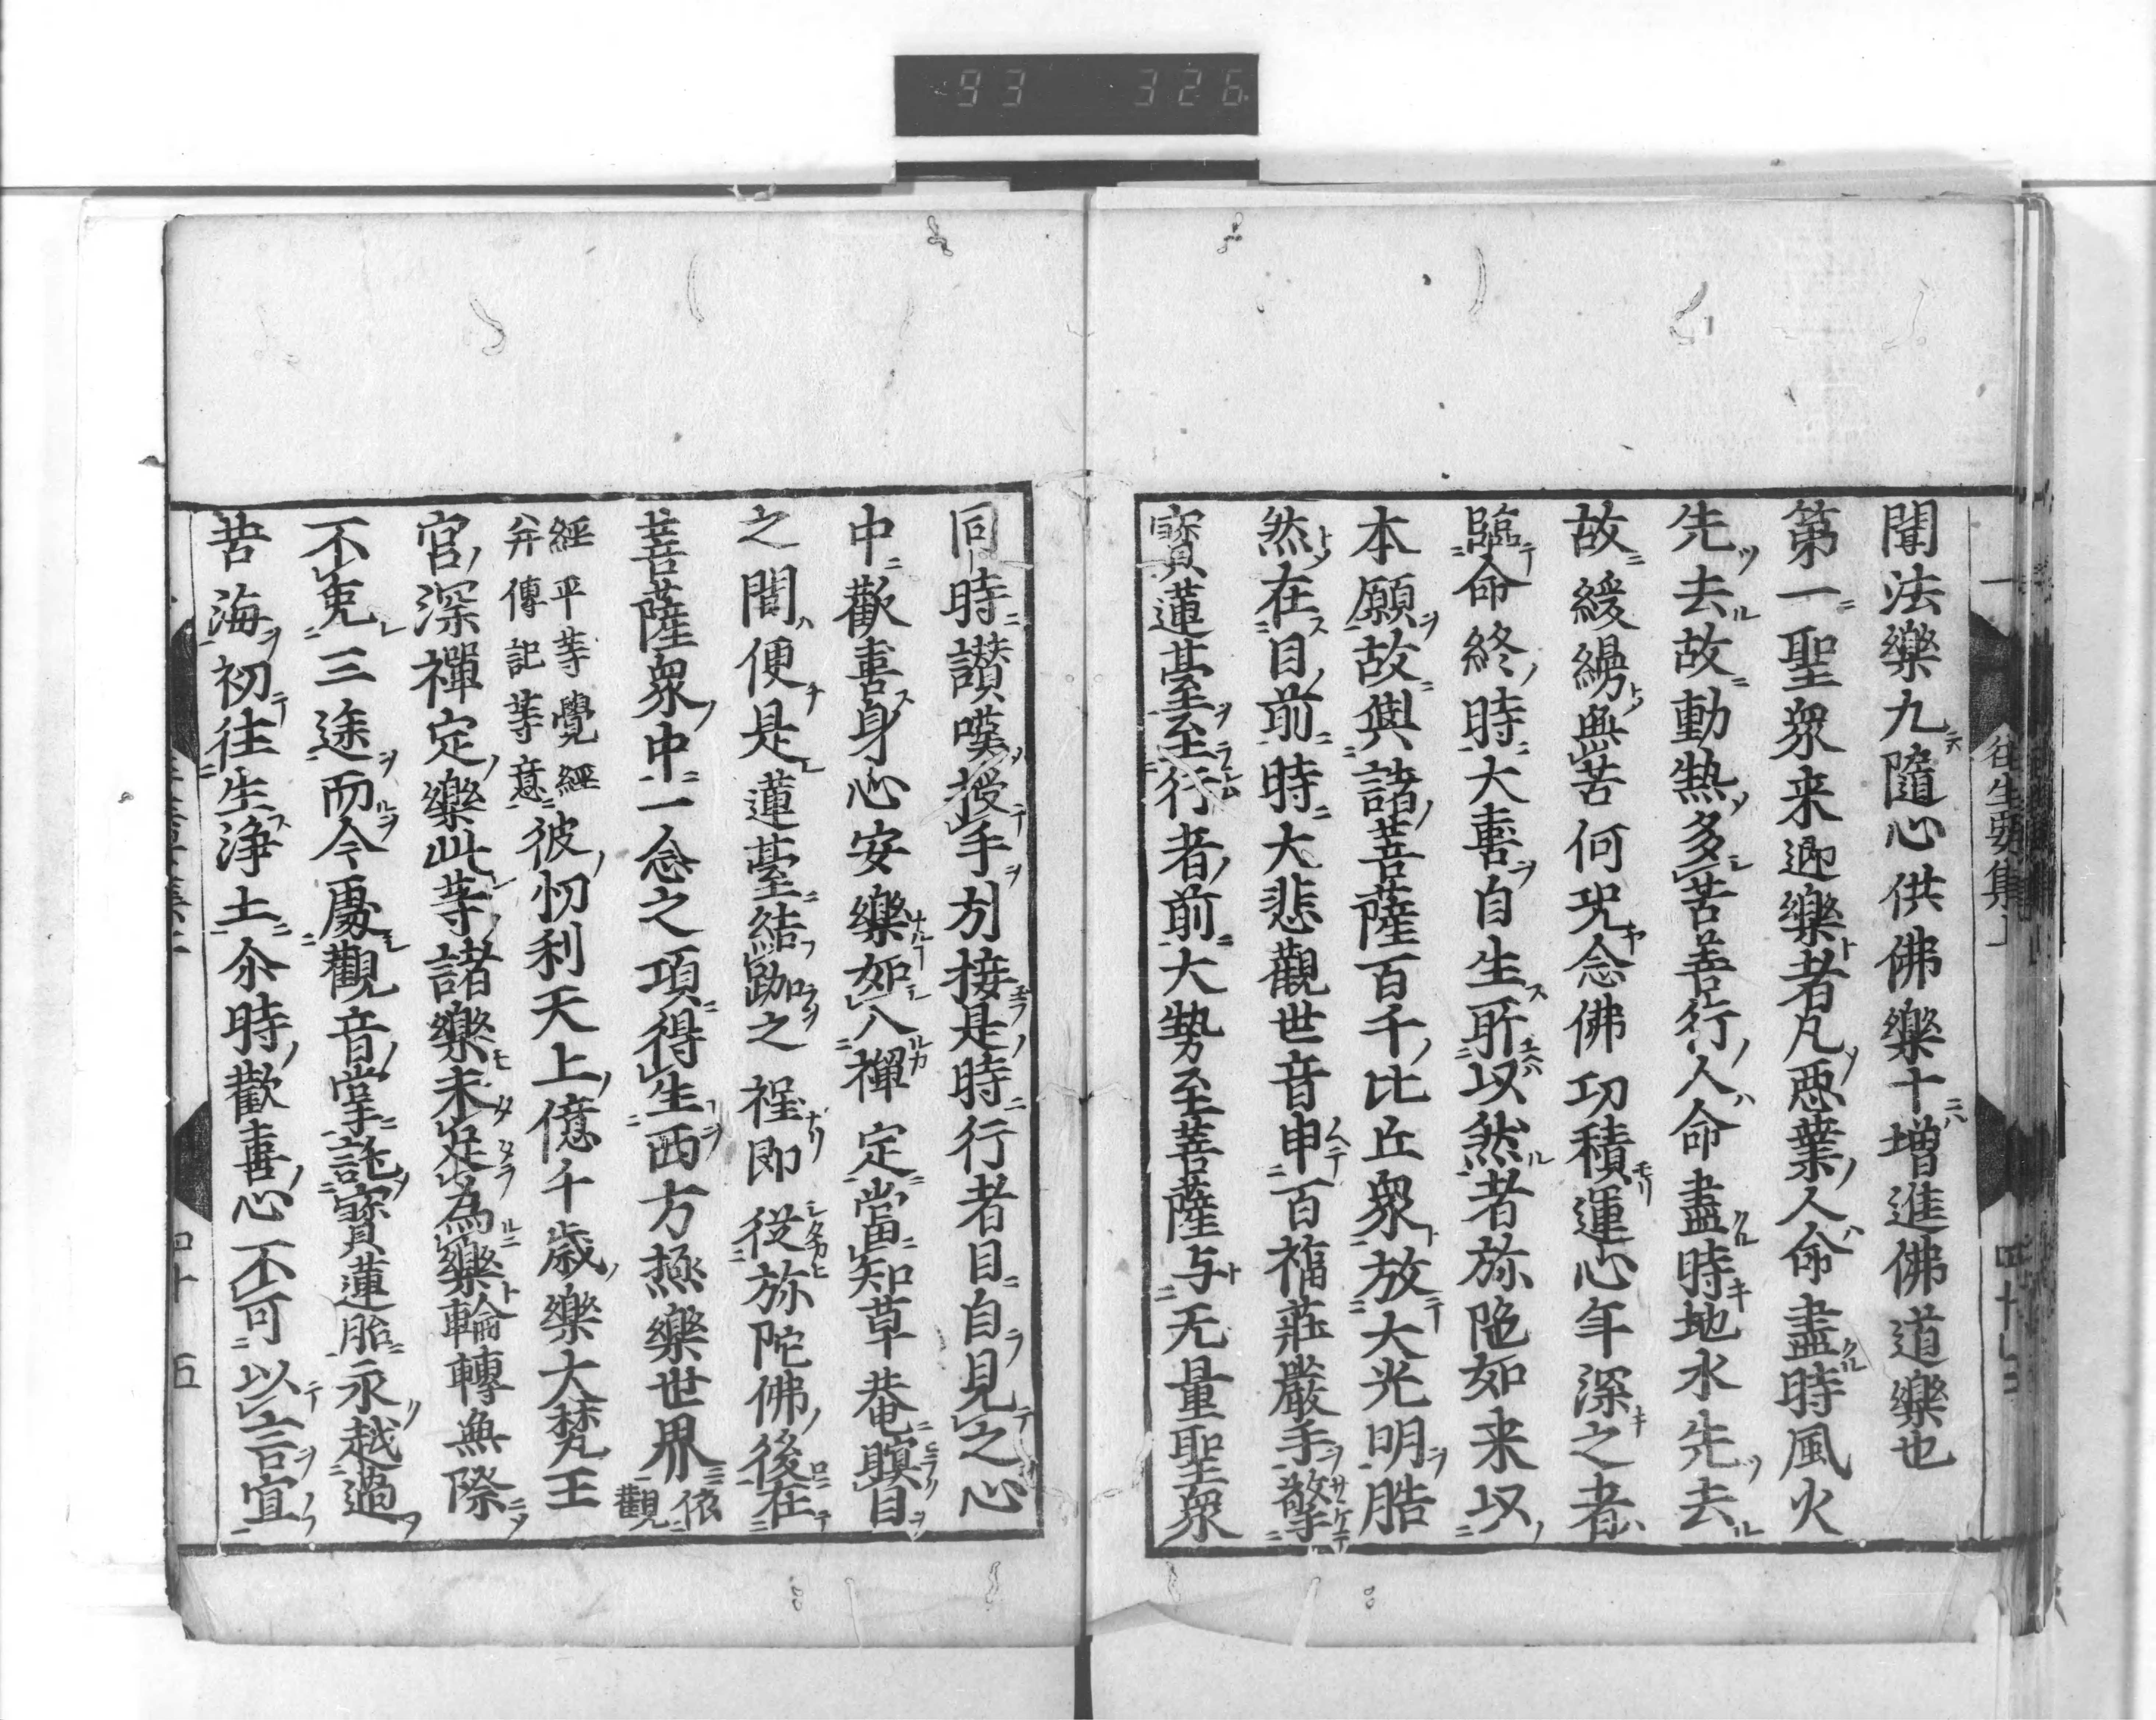 93 326
聞法樂九隨心供佛樂十増進佛道樂也
第一聖衆来迎樂者凡惡業人命盡時風火
先去故動熱多苦善行人命盡時地水先去
故緩縵無苦何況念佛功積運心年深之者
臨命終時大喜自生所以然者弥陁如来以
本願故與諸菩薩百千比丘衆放大光明晧
然在目前時大悲觀世音申百福莊嚴手擎
寳蓮臺至行者前大勢至菩薩与无量聖衆
同時讃嘆授手引接是時行者目自見之心
中歡喜身心安樂如入禪定當知草菴瞑目
之間便是蓮臺結跏之程即從弥陀佛後在
菩薩衆中一念之項得生西方極樂世界依觀
經平等覺經
并傳記等意彼忉利天上億千歳樂大梵王
宮深禪定樂此等諸樂未足為樂輪轉無際
不免三途而今處觀音掌託寳蓮胎永越過
苦海初往生淨土尒時歡喜心不可以言宣
往生要集上
四十五